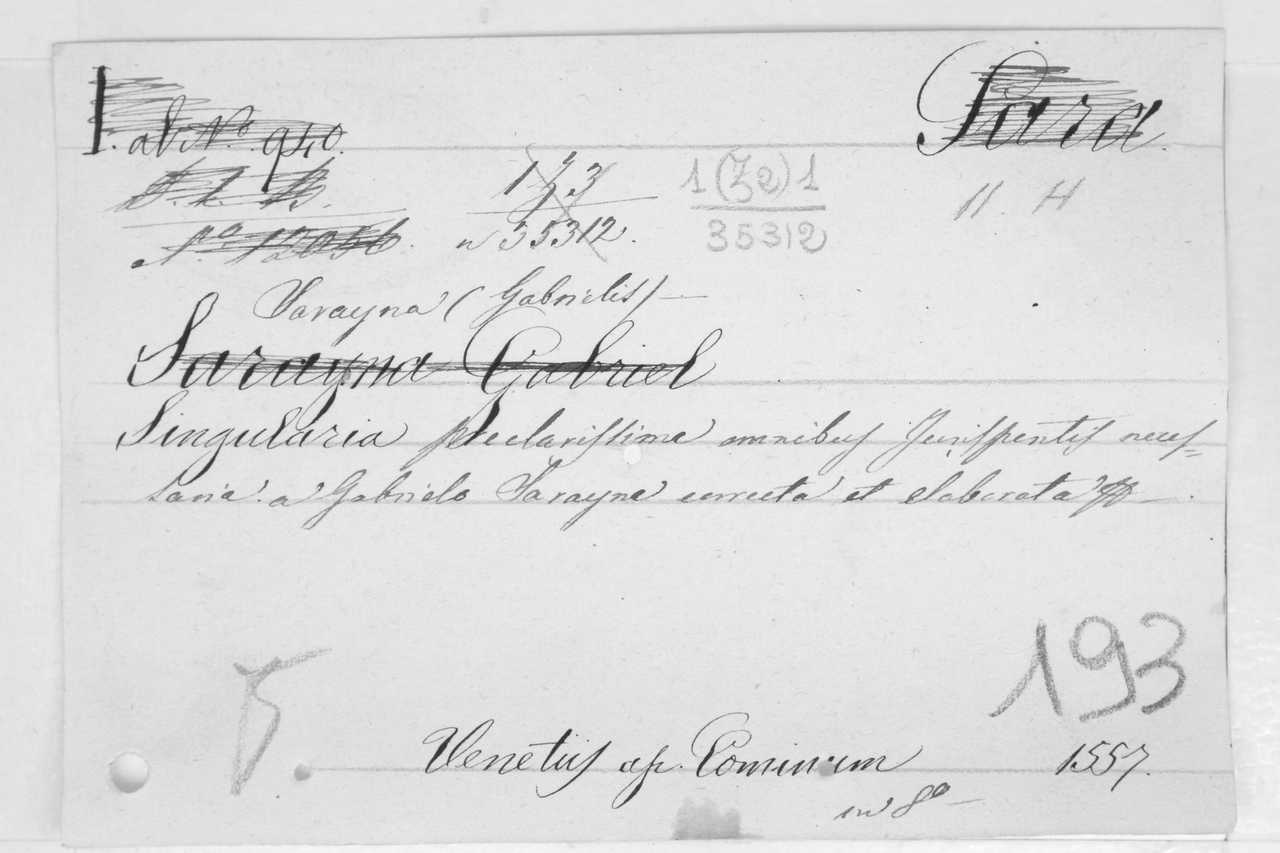 I. ab No. 940. Sara.
1 Z 3 1 (Z2) 1 11. H
No. 12056. n 35312. 35312
Sarayna (Gabrielis) —
Sarayna Gabriel
Singularia preclarissima omnibus Jurispentis neces=
saria a Gabriele Sarayna correcta et elaborata
193
Venetiis ap. Cominum 1557.
in 8o —